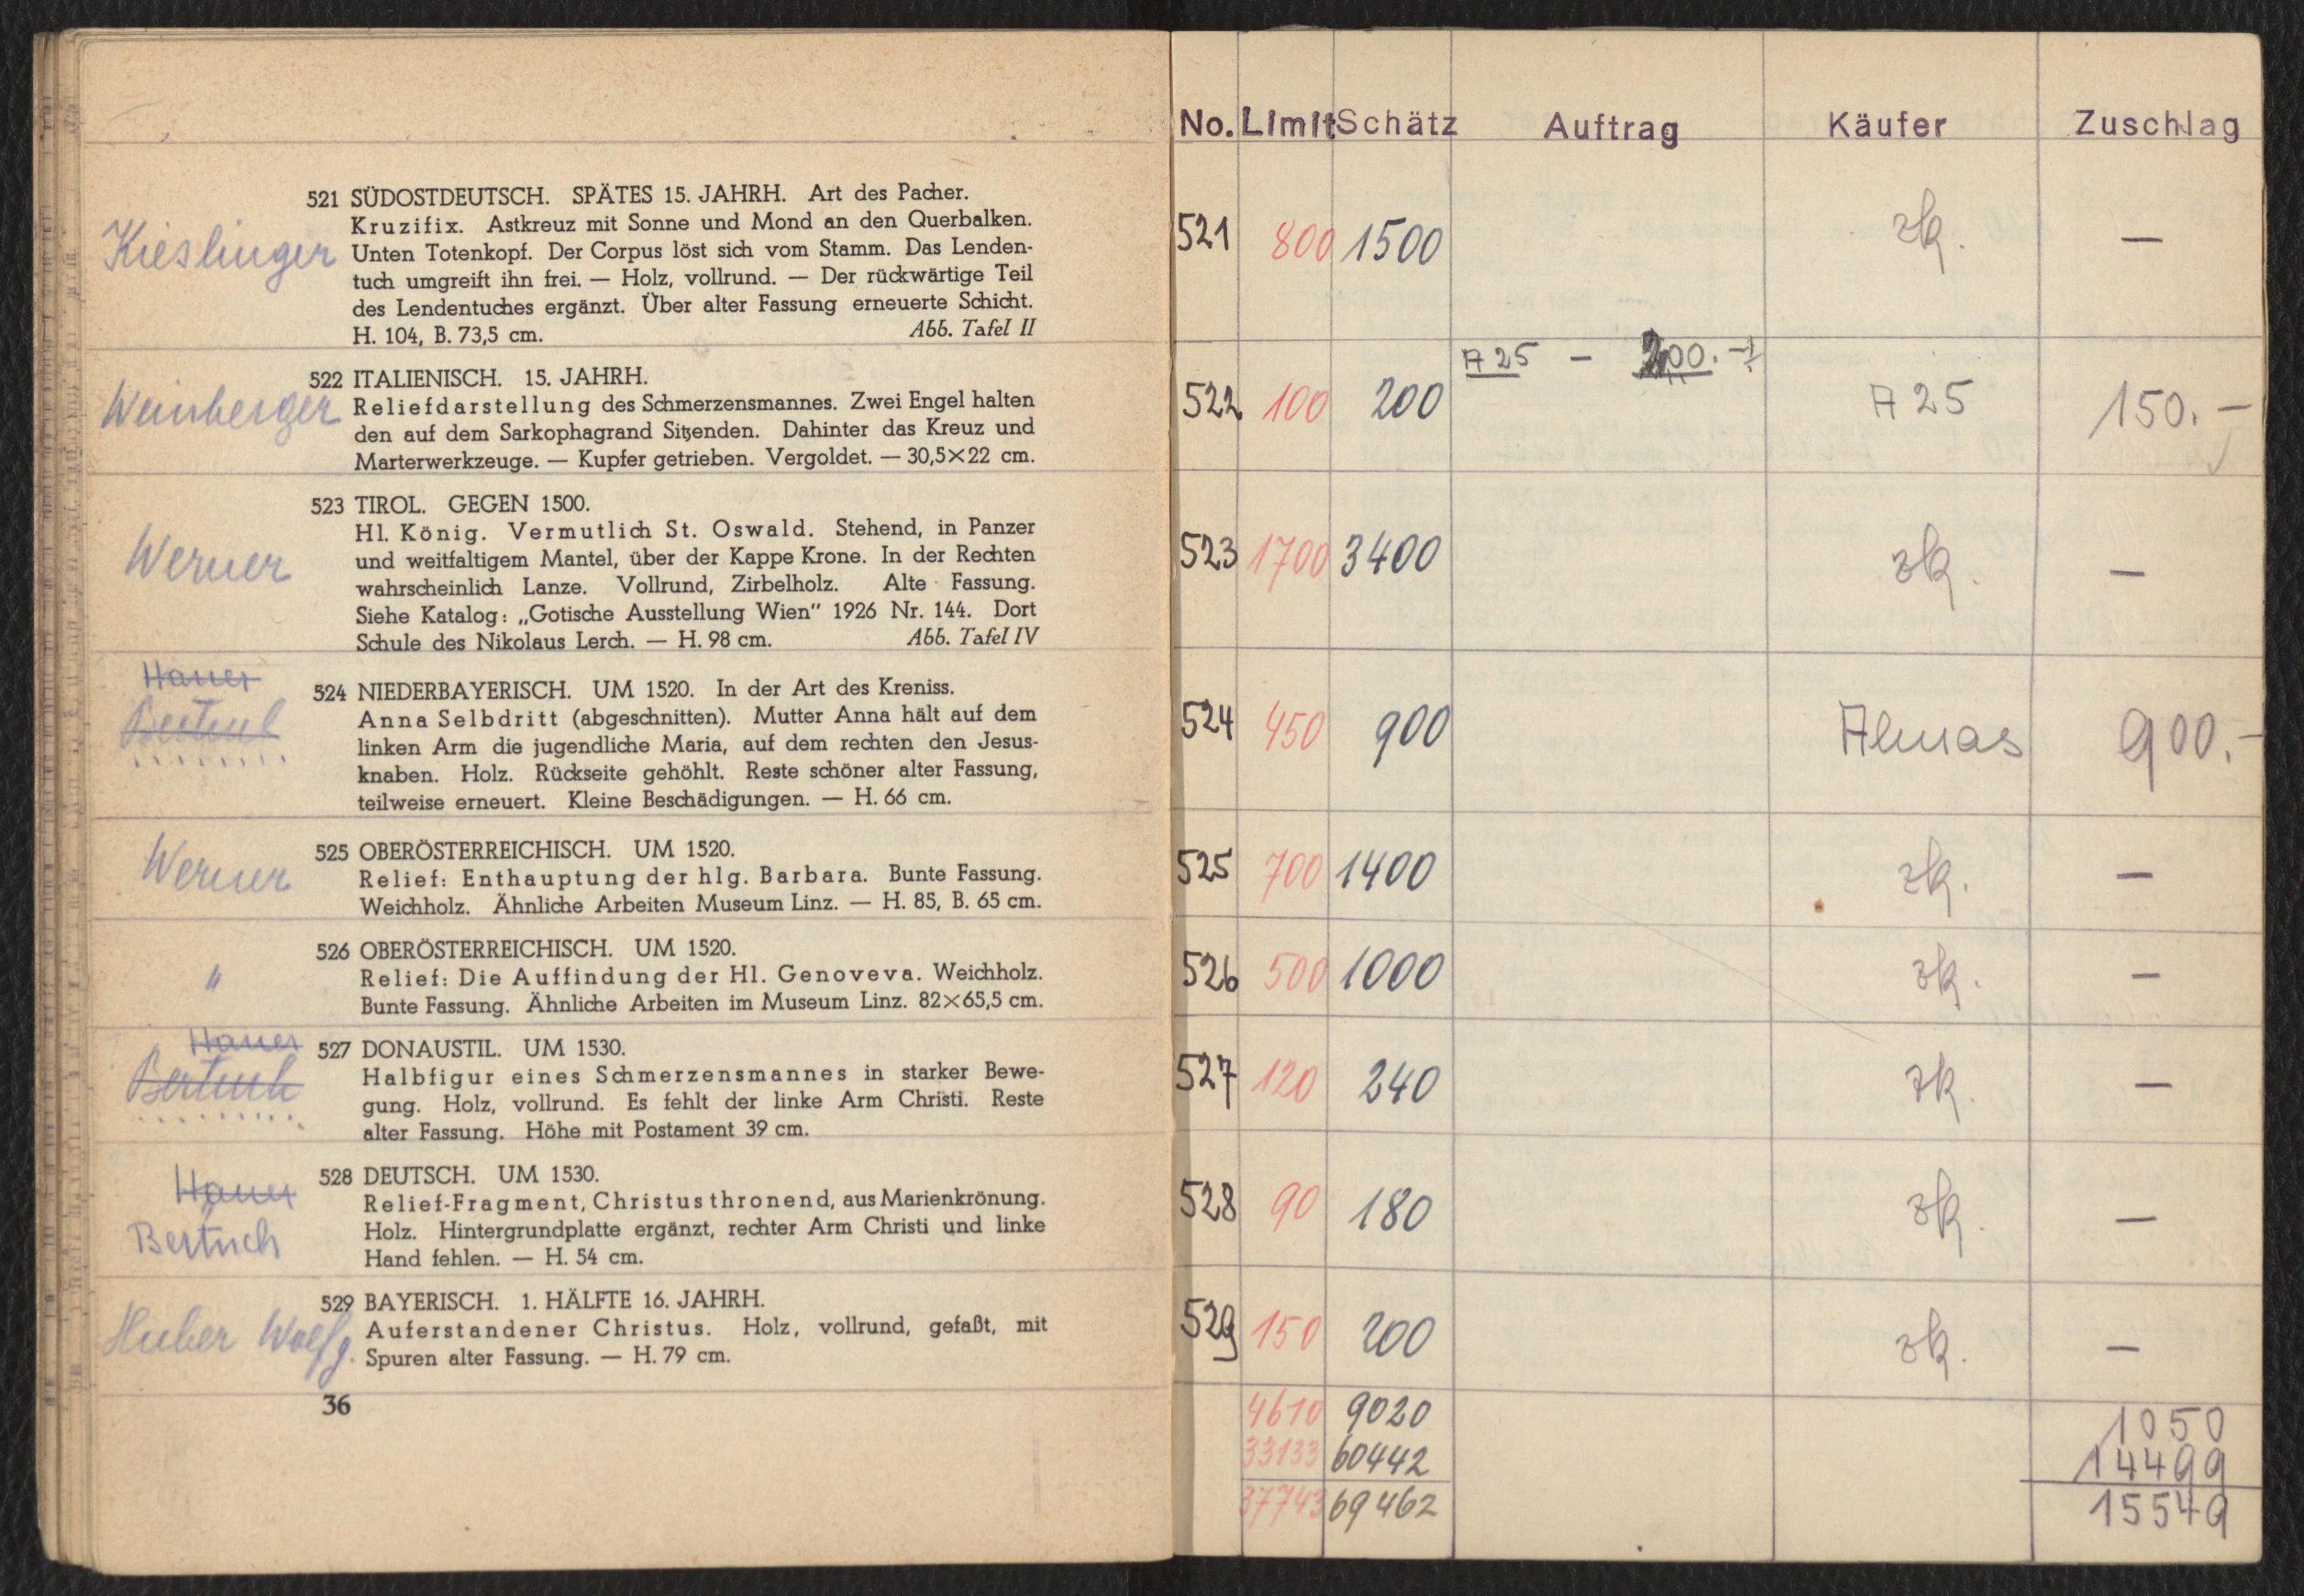 521 SÜDOSTDEUTSCH. SPÄTES 15. JAHRH. Art des Pacher.
Kieslinger
Kruzifix. Astkreuz mit Sonne und Mond an den Querbalken.
Unten Totenkopf. Der Corpus löst sich vom Stamm. Das Lenden-
tuch umgreift ihn frei. — Holz, vollrund. — Der rückwärtige Teil
des Lendentuches ergänzt. Über alter Fassung erneuerte Schicht.
H. 104, B. 73,5 cm. Abb. Tafel II
522 ITALIENISCH. 15. JAHRH.
Weinberger
Reliefdarstellung des Schmerzensmannes. Zwei Engel halten
den auf dem Sarkophagrand Sitzenden. Dahinter das Kreuz und
Marterwerkzeuge. — Kupfer getrieben. Vergoldet. — 30,5×22 cm.
523 TIROL. GEGEN 1500.
Werner
Hl. König. Vermutlich St. Oswald. Stehend, in Panzer
und weitfaltigem Mantel, über der Kappe Krone. In der Rechten
wahrscheinlich Lanze. Vollrund, Zirbelholz. Alte Fassung.
Siehe Katalog: „Gotische Ausstellung Wien" 1926 Nr. 144. Dort
Schule des Nikolaus Lerch. — H. 98 cm. Abb. Tafel IV
Hauer
Bertuch
524 NIEDERBAYERISCH. UM 1520. In der Art des Kreniss.
Anna Selbdritt (abgeschnitten). Mutter Anna hält auf dem
linken Arm die jugendliche Maria, auf dem rechten den Jesus-
knaben. Holz. Rückseite gehöhlt. Reste schöner alter Fassung,
teilweise erneuert. Kleine Beschädigungen. — H. 66 cm.
525 OBERÖSTERREICHISCH. UM 1520.
Werner
Relief: Enthauptung der hlg. Barbara. Bunte Fassung.
Weichholz. Ähnliche Arbeiten Museum Linz. — H. 85, B. 65 cm.
526 OBERÖSTERREICHISCH. UM 1520.
"
Relief: Die Auffindung der Hl. Genoveva. Weichholz.
Bunte Fassung. Ähnliche Arbeiten im Museum Linz. 82×65,5 cm.
Hauer
Bertuch
527 DONAUSTIL. UM 1530.
Halbfigur eines Schmerzensmannes in starker Bewe-
gung. Holz, vollrund. Es fehlt der linke Arm Christi. Reste
alter Fassung. Höhe mit Postament 39 cm.
Hauer
Bertuch
528 DEUTSCH. UM 1530.
Relief-Fragment, Christus thronend, aus Marienkrönung.
Holz. Hintergrundplatte ergänzt, rechter Arm Christi und linke
Hand fehlen. — H. 54 cm.
529 BAYERISCH. 1. HÄLFTE 16. JAHRH.
Huber Wolfg.
Auferstandener Christus. Holz, vollrund, gefaßt, mit
Spuren alter Fassung. — H. 79 cm.
36
No. Limit Schätz Auftrag Käufer Zuschlag
521 800 1500 zk. —
A 25 — 200.—
522 100 200 A 25 150.—
523 1700 3400 zk. —
524 450 900 Almas 900.—
525 700 1400 zk. —
526 500 1000 zk. —
527 120 240 zk. —
528 90 180 zk. —
529 150 200 zk. —
4610 9020 1050
33133 60442 14499
37743 69462 15549